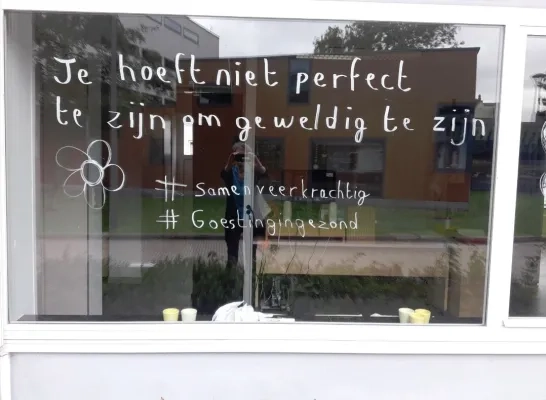 Je hoeft niet perfect
te zijn om geweldig te zijn
# Samenveerkrachtig
# Goestingingezond